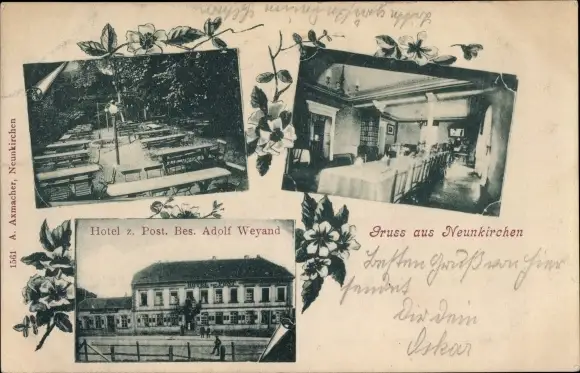 1561 A. Axmacher, Neunkirchen
Hotel z. Post. Bes. Adolf Weyand
Gruss aus Neunkirchen
Besten Gruß von hier
sendet
Dir dein
Oskar